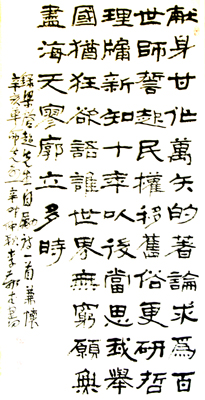 献身甘作萬矢的著論求為百
世師誓起民權移舊俗更研哲
理牖新知十年以後當思我舉
國猶狂欲語誰世界無窮願無
盡海天寥廓立多時
錄梁啓超先生自勵詩一首兼懷
辛亥革命志士辛卯仲秋李